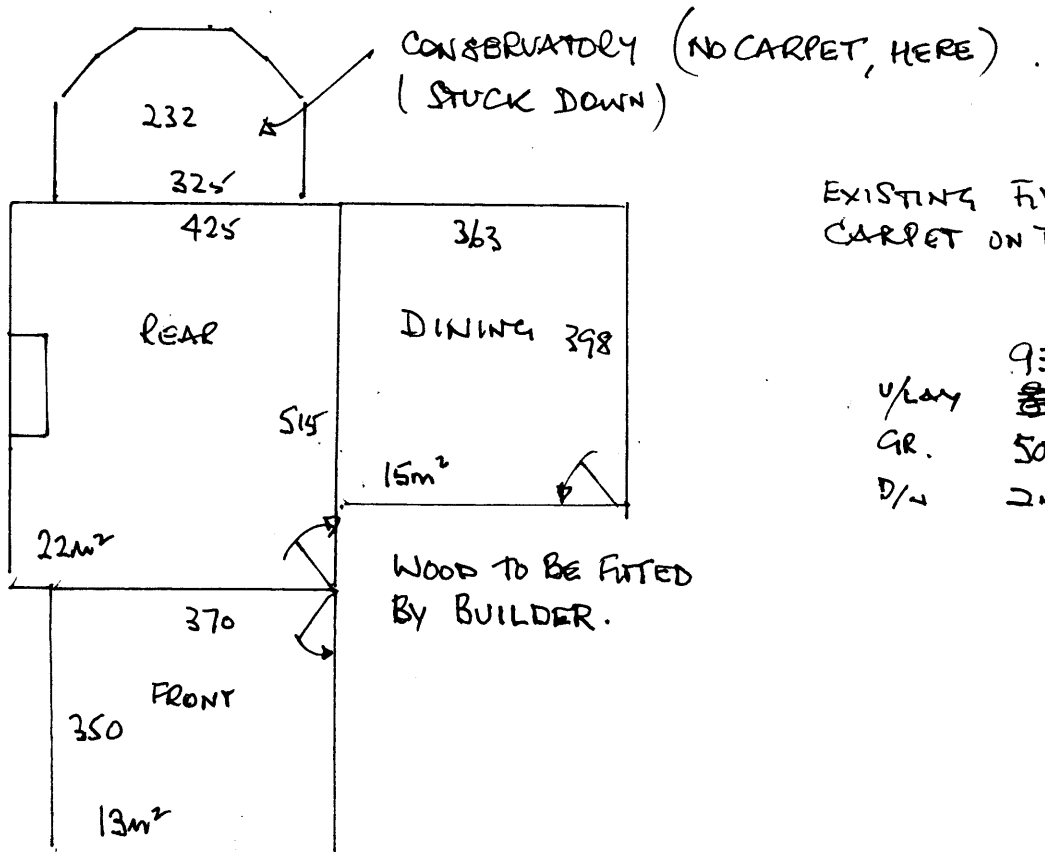 CONSERVATORY (NO CARPET, HERE).
(STUCK DOWN)
232
325
425
363
EXISTING
CARPET ON
REAR
DINING
398
515
93
U/LAY
GR. 50
D/
15m²
22m²
WOOD TO BE FITTED
BY BUILDER.
370
FRONT
350
13m²